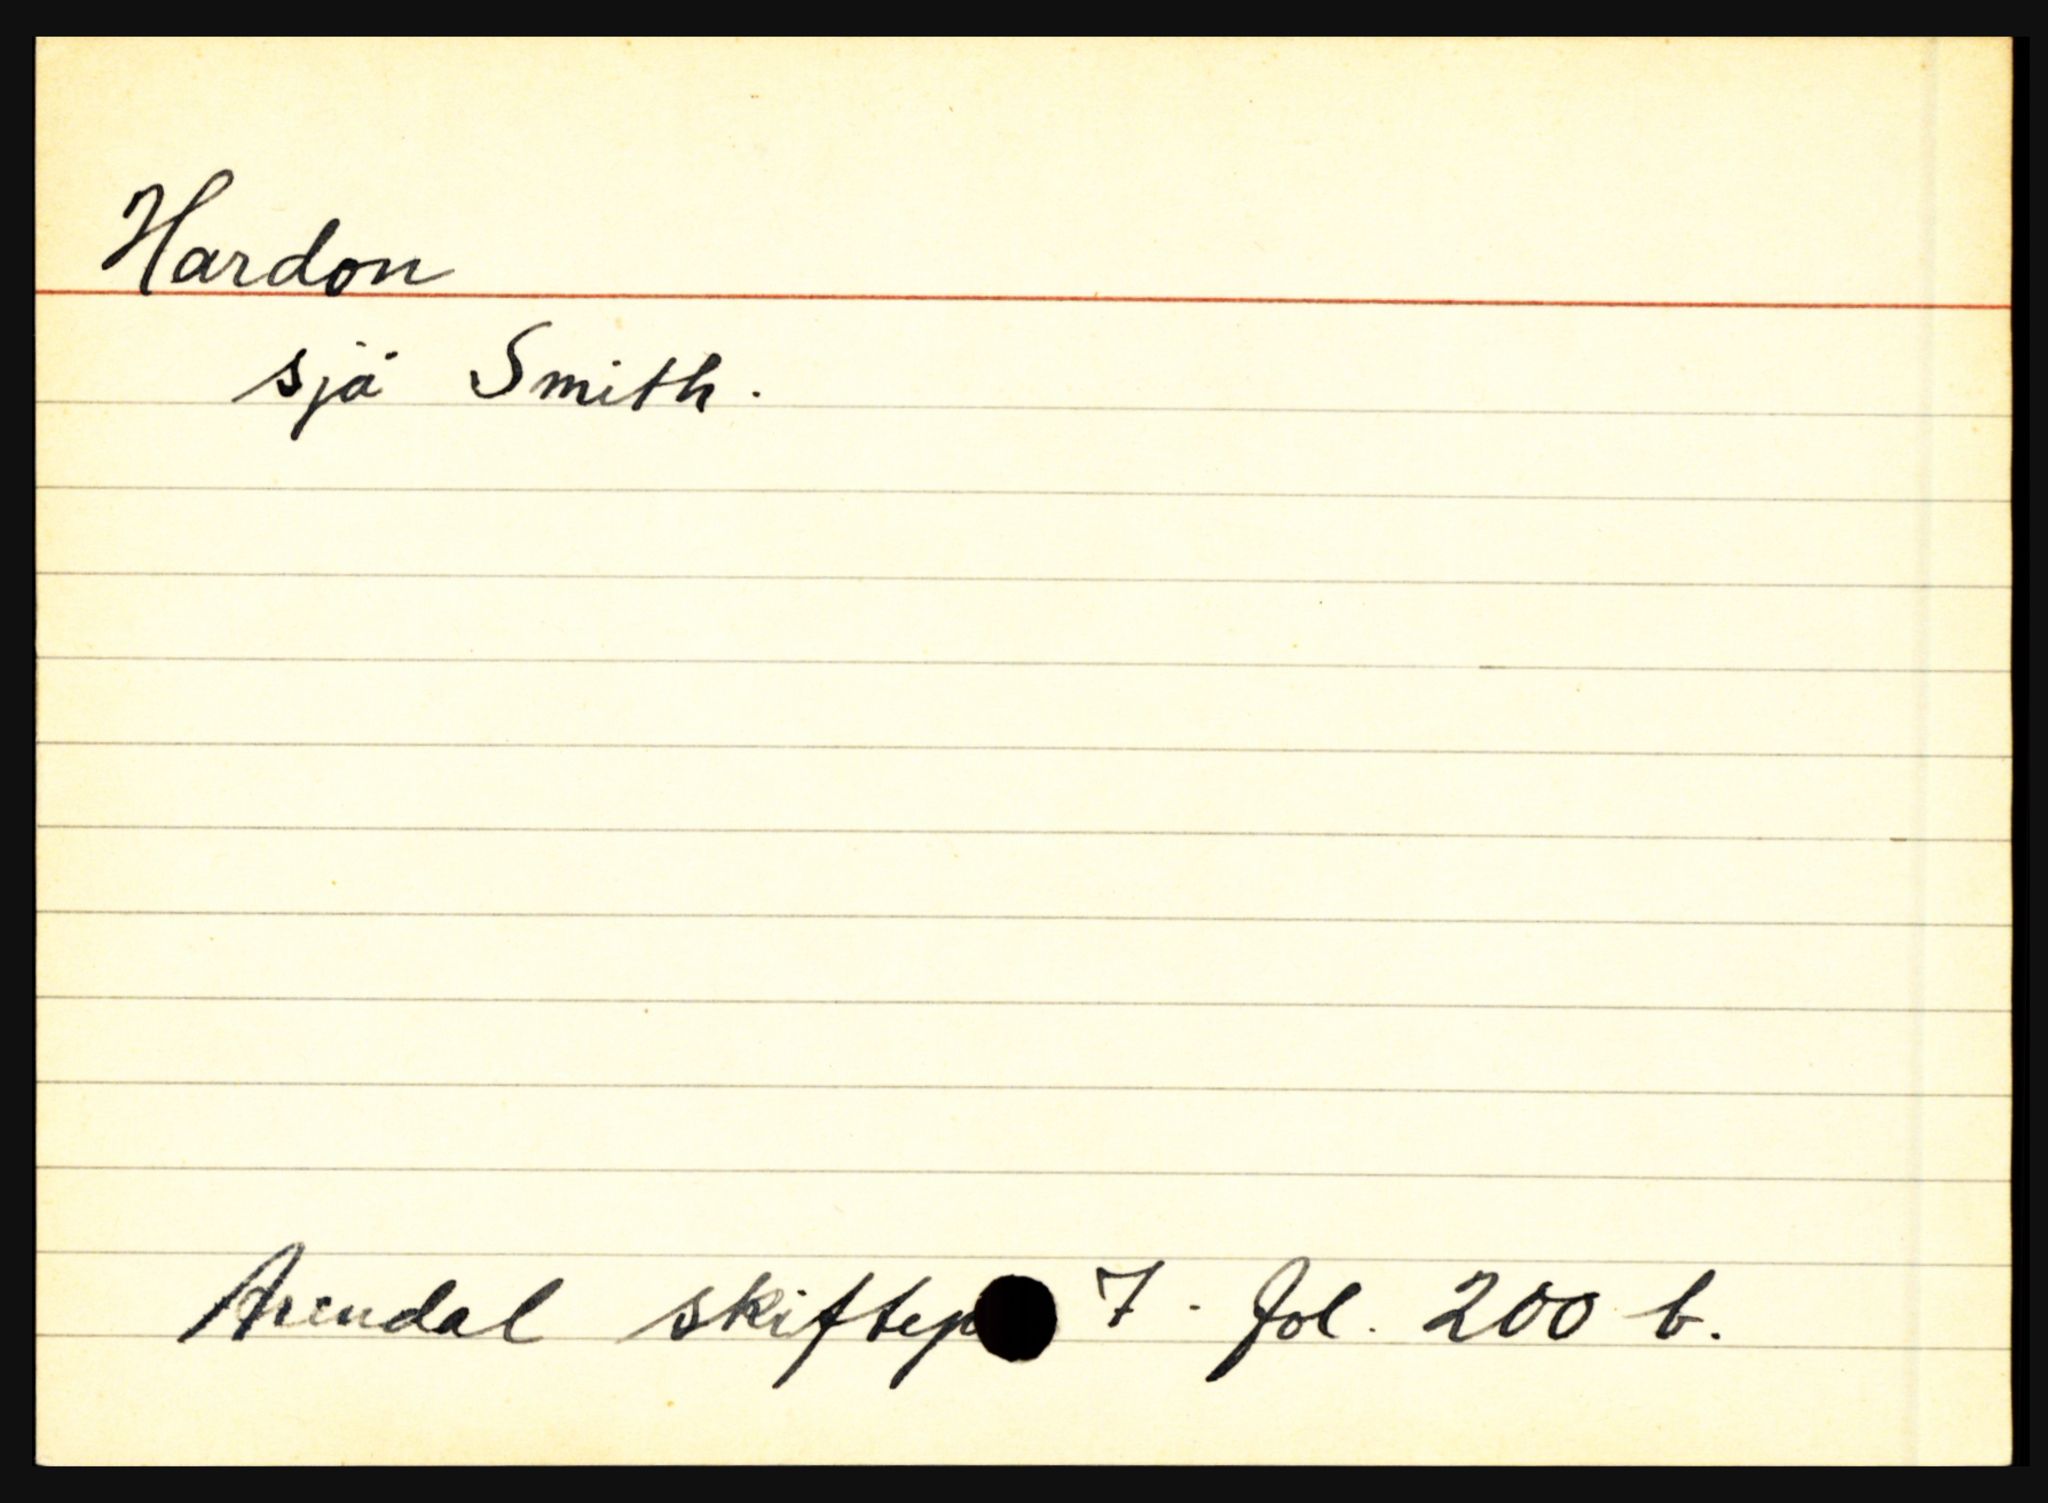 Hardon
sjå Smith.
Arendal skiftep 7. fol. 200 b.